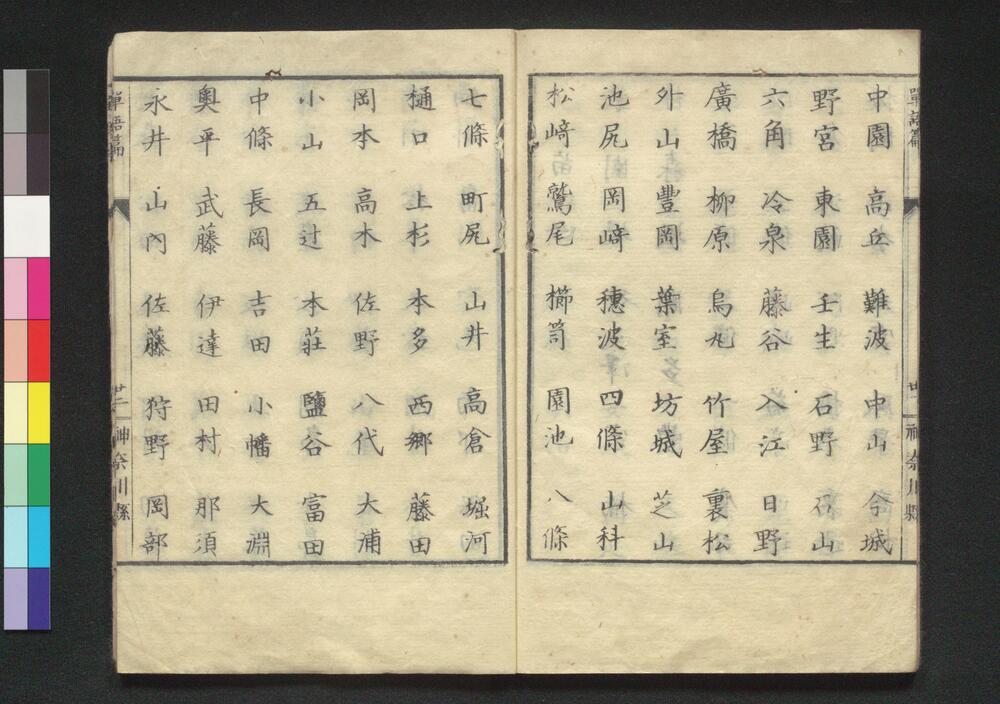 單語篇 廿一 神奈川縣
中園 高丘 難波 中山 今城
野宮 東園 壬生 石野 石山
六角 冷泉 藤谷 入江 日野
廣橋 柳原 烏丸 竹屋 裏松
外山 豐岡 葉室 坊城 芝山
池尻 岡﨑 穗波 四條 山科
松﨑 鷲尾 櫛笥 園池 八條
七條 町尻 山井 高倉 堀河
樋口 上杉 本多 西郷 藤田
岡本 高木 佐野 八代 大浦
小山 五辻 本莊 鹽谷 富田
中條 長岡 吉田 小幡 大淵
奧平 武藤 伊達 田村 那須
永井 山內 佐藤 狩野 岡部
單語篇 廿二 神奈川縣